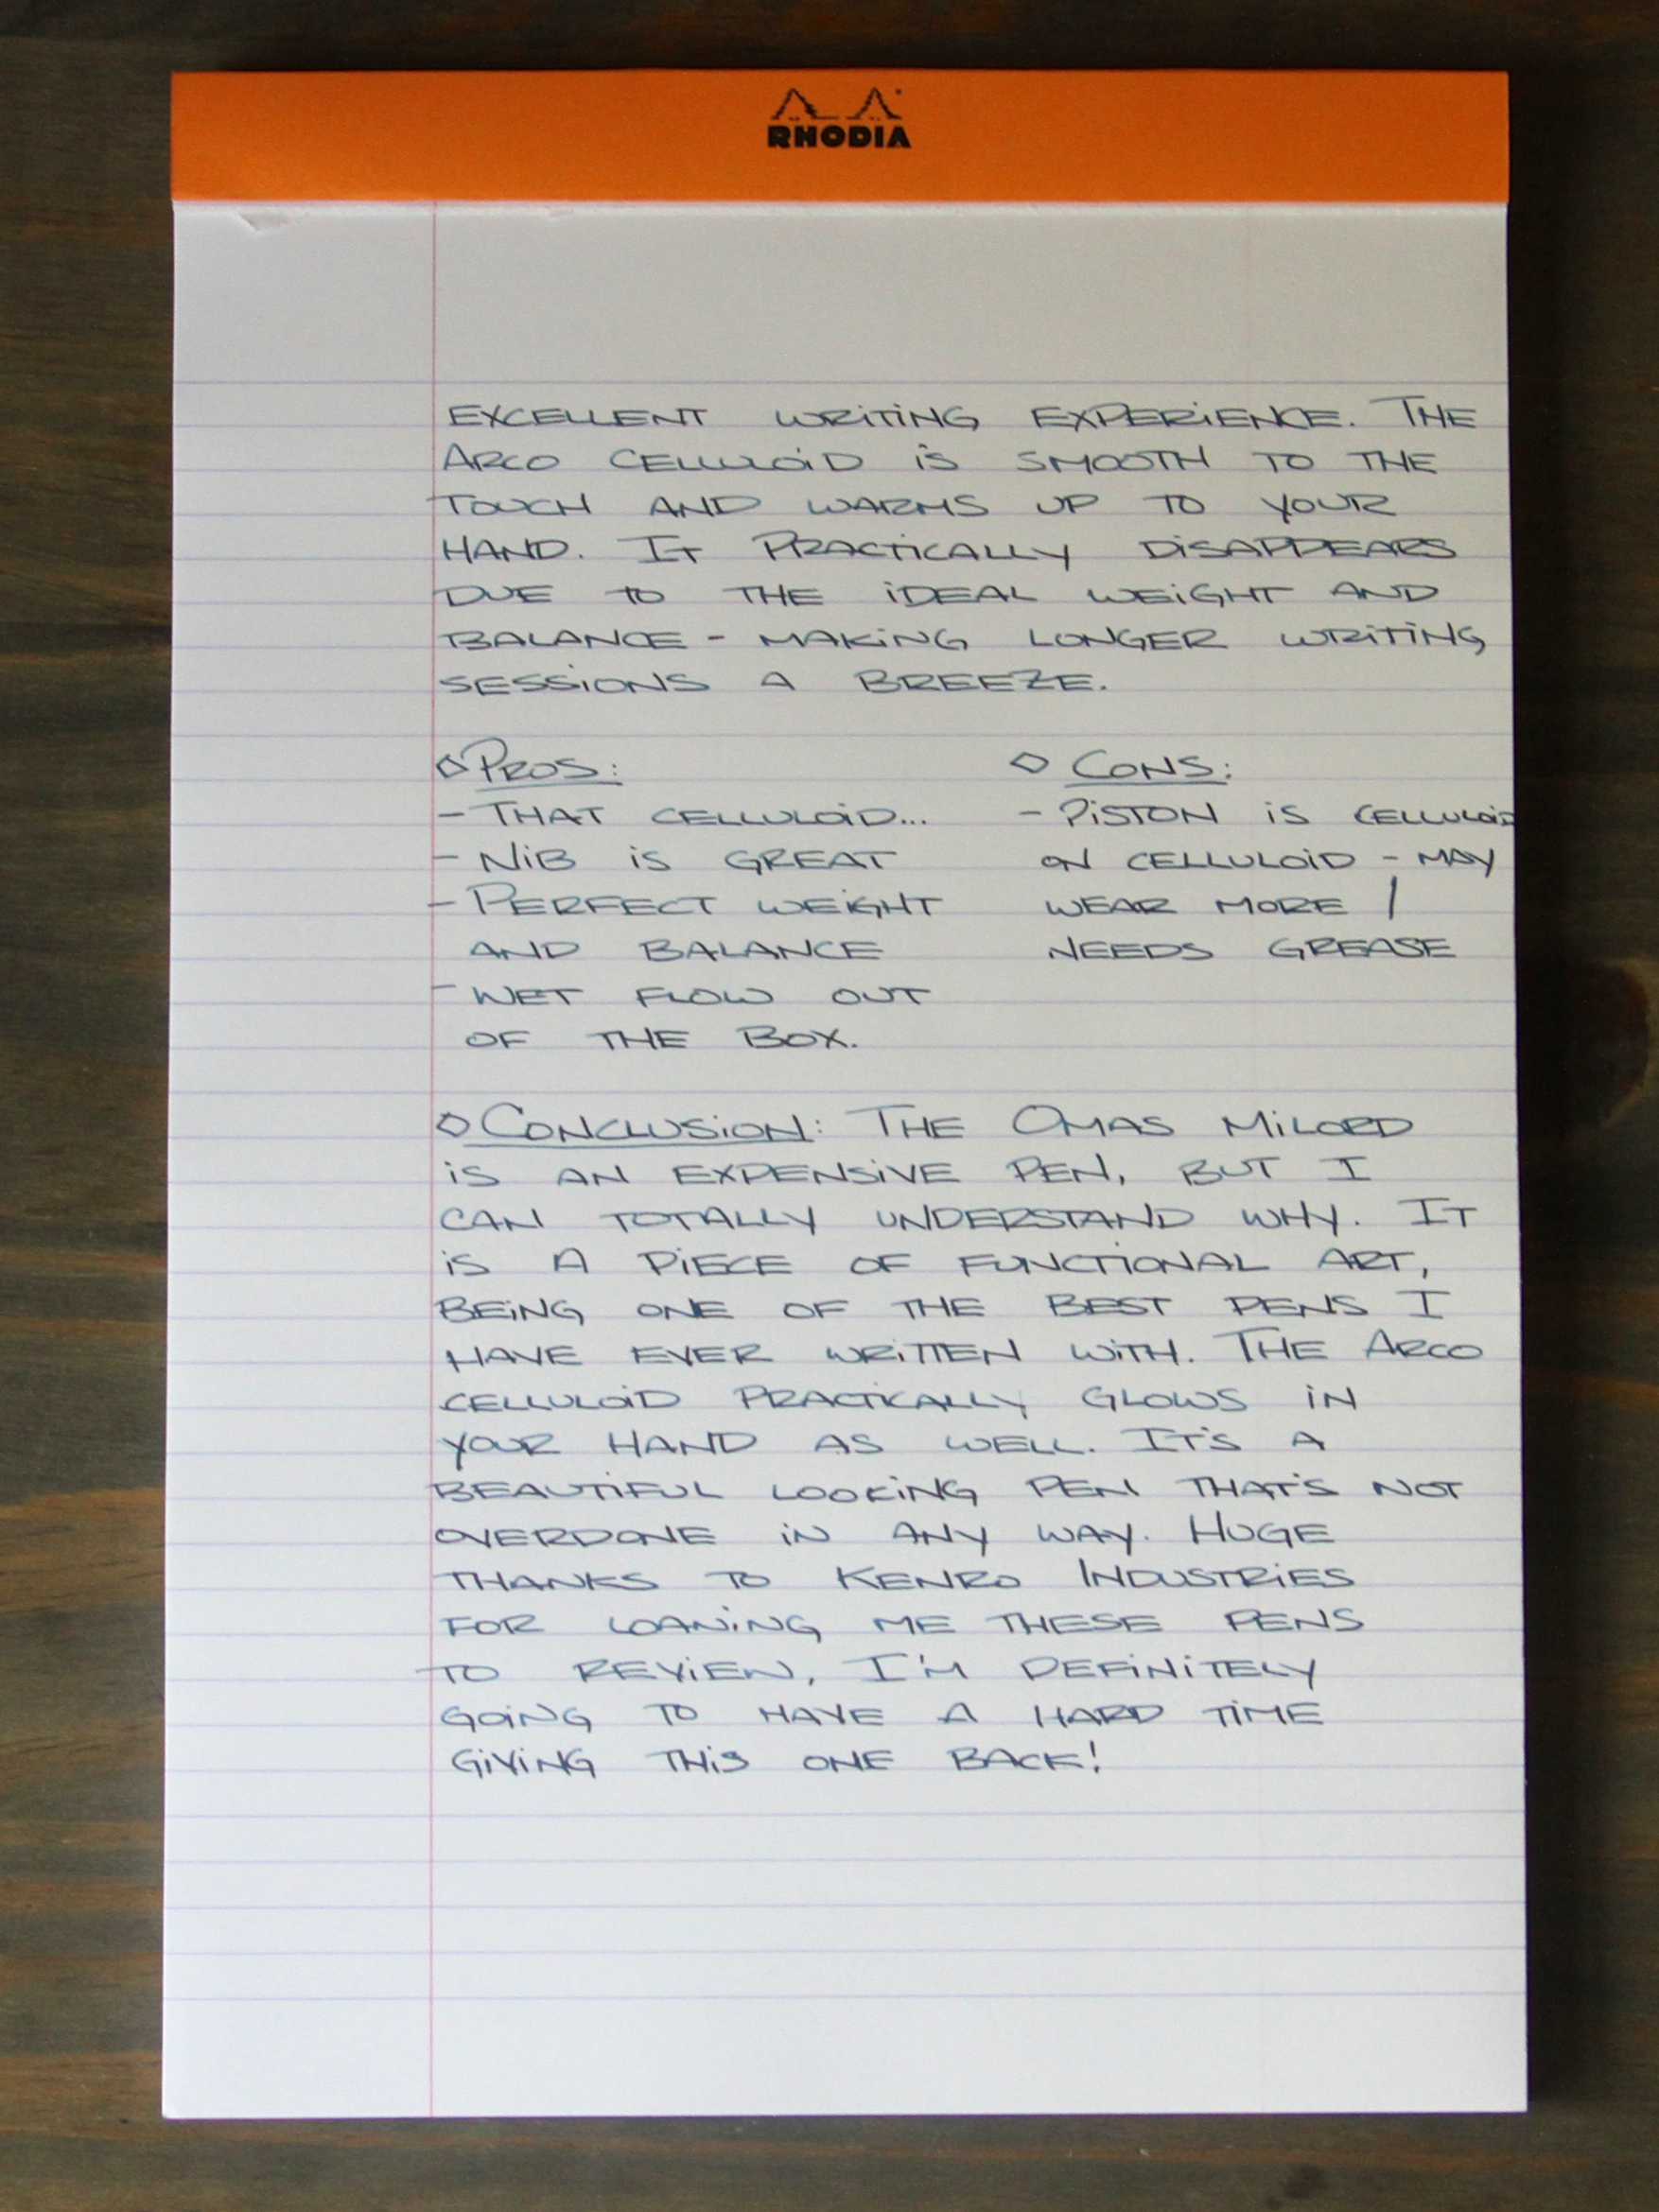 RHODIA
EXCELLENT WRITING EXPERIENCE. THE
ARCO CELLULOID IS SMOOTH TO THE
TOUCH AND WARMS UP TO YOUR
HAND. IT PRACTICALLY DISAPPEARS
DUE TO THE IDEAL WEIGHT AND
BALANCE - MAKING LONGER WRITING
SESSIONS A BREEZE.
◇ PROS:
- THAT CELLULOID...
- NIB IS GREAT
- PERFECT WEIGHT
AND BALANCE
- WET FLOW OUT
OF THE BOX.
◇ CONS:
- PISTON IS CELLULOID
ON CELLULOID - MAY
WEAR MORE /
NEEDS GREASE
◇ CONCLUSION: THE OMAS MILORD
IS AN EXPENSIVE PEN, BUT I
CAN TOTALLY UNDERSTAND WHY. IT
IS A PIECE OF FUNCTIONAL ART,
BEING ONE OF THE BEST PENS I
HAVE EVER WRITTEN WITH. THE ARCO
CELLULOID PRACTICALLY GLOWS IN
YOUR HAND AS WELL. IT'S A
BEAUTIFUL LOOKING PEN THAT'S NOT
OVERDONE IN ANY WAY. HUGE
THANKS TO KENRO INDUSTRIES
FOR LOANING ME THESE PENS
TO REVIEW, I'M DEFINITELY
GOING TO HAVE A HARD TIME
GIVING THIS ONE BACK!